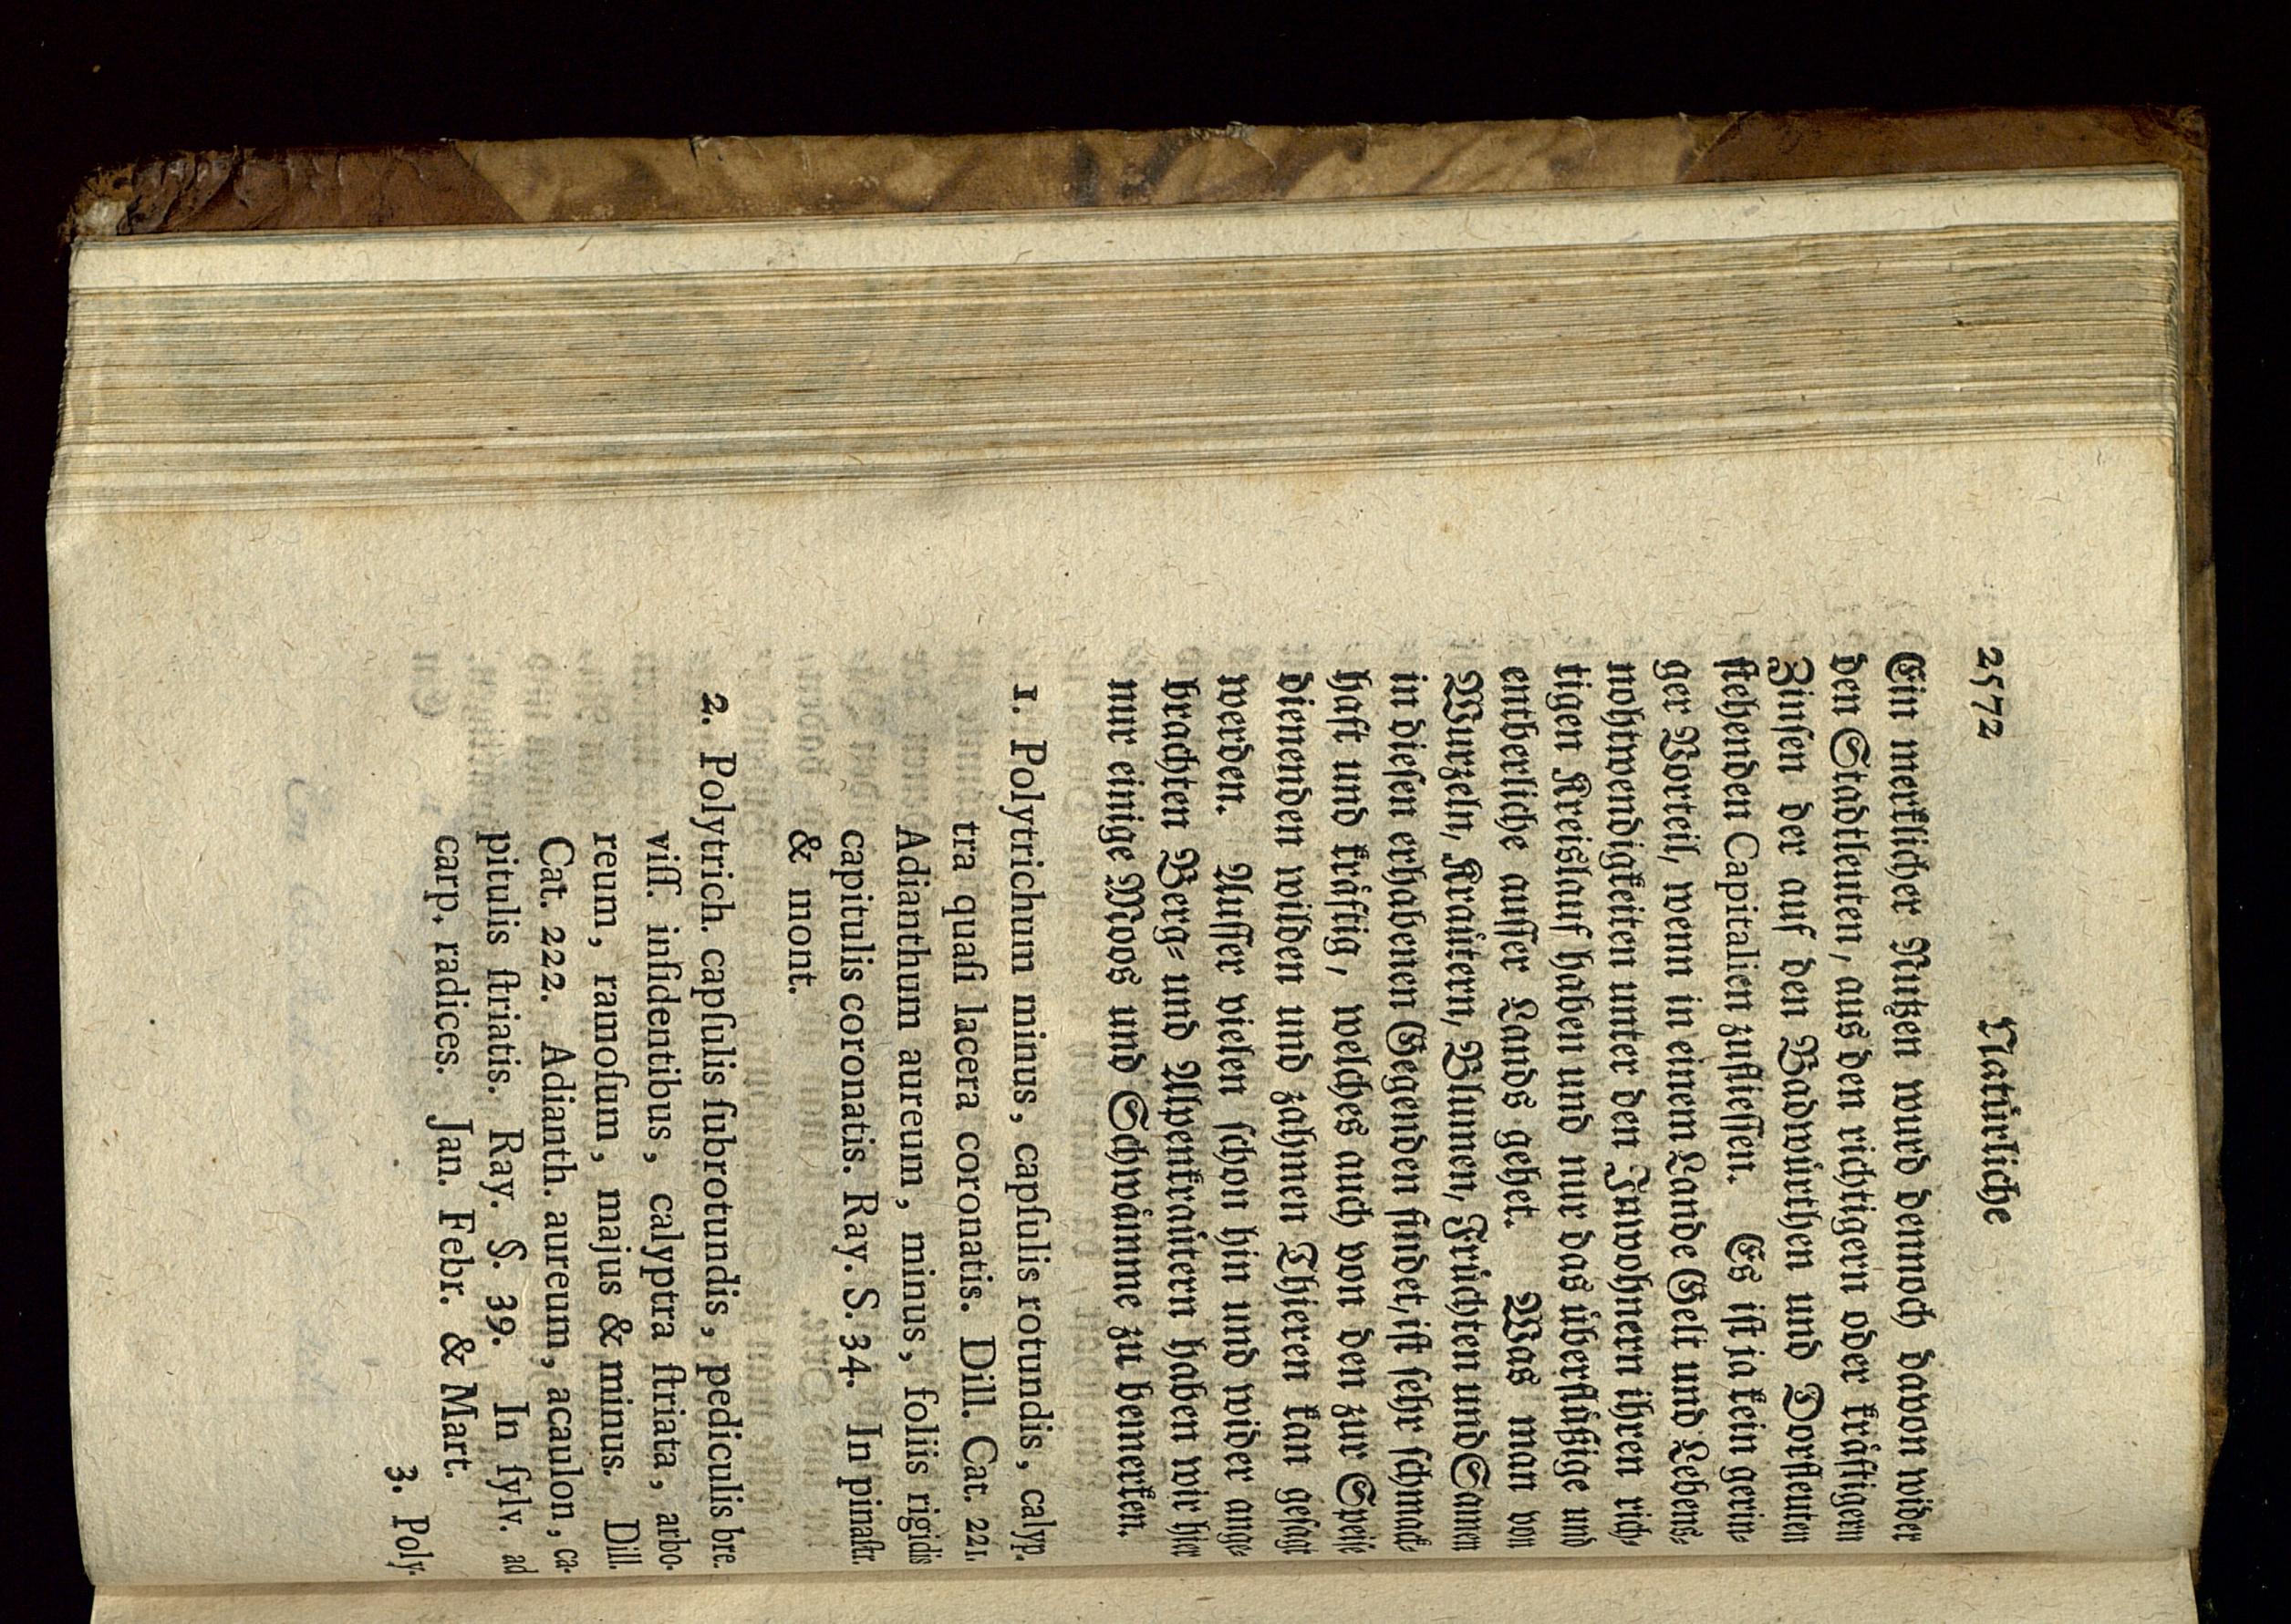 2572 Natürliche
Ein merklicher Nutzen wurd dennoch davon wider
den Stadtleuten, aus den richtigern oder kräftigern
Zinsen der auf den Badwirthen und Dorfleuten
stehenden Capitalien zufliessen. Es ist ja kein gerin-
ger Vorteil, wenn in einem Lande Gelt und Lebens-
nohtwendigkeiten unter den Inwohnern ihren rich-
tigen Kreislauf haben und nur das überflüßige und
entberliche ausser Lands gehet. Was man von
Wurzeln, Kraütern, Blumen, Früchten und Samen
in diesen erhabenen Gegenden findet, ist sehr schmack-
haft und kräftig, welches auch von den zur Speise
dienenden wilden und zahmen Thieren kan gesagt
werden. Ausser vielen schon hin und wider ange-
brachten Berg- und Alpenkraütern haben wir hier
nur einige Moos und Schwämme zu bemerken.
1. Polytrichum minus, capſulis rotundis, calyp.
tra quaſi lacera coronatis. Dill. Cat. 221.
Adianthum aureum, minus, foliis rigidis
capitulis coronatis. Ray. S. 34. In pinaſtr.
& mont.
2. Polytrich. capſulis ſubrotundis, pediculis bre.
viſſ. inſidentibus, calyptra ſtriata, arbo-
reum, ramoſum, majus & minus. Dill.
Cat. 222. Adianth. aureum, acaulon, ca-
pitulis ſtriatis. Ray. S. 39. In ſylv. ad
carp. radices. Jan. Febr. & Mart.
3. Poly-